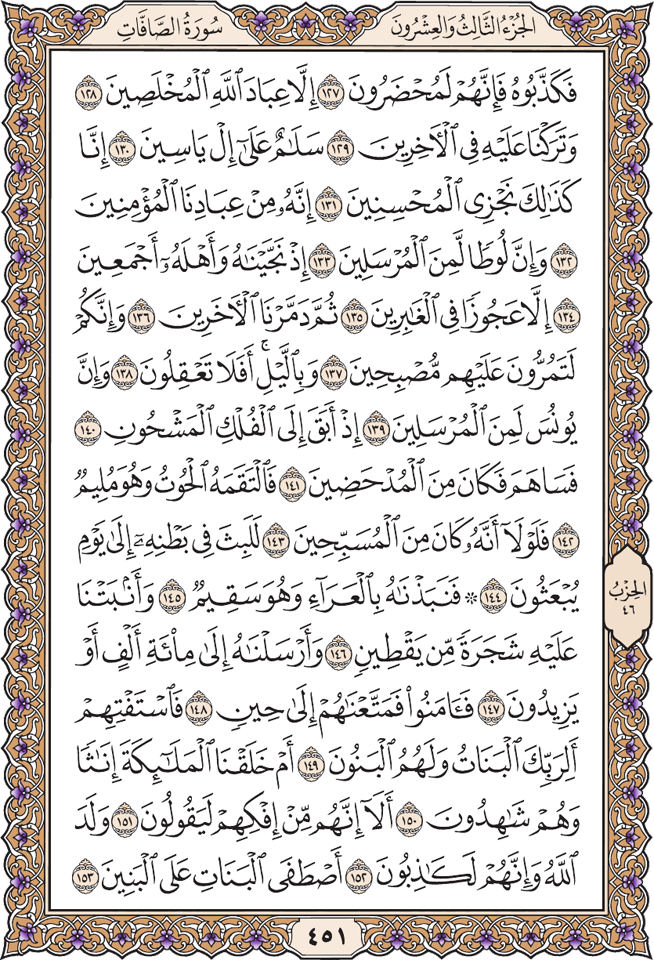 سُورَةُ الصَّافَّاتِ
الجُزْءُ الثَّالِثُ وَالعِشْرُونَ
فَكَذَّبُوهُ فَإِنَّهُمْ لَمُحْضَرُونَ ١٢٧ إِلَّا عِبَادَ ٱللَّهِ ٱلْمُخْلَصِينَ ١٢٨
وَتَرَكْنَا عَلَيْهِ فِى ٱلْـَٔاخِرِينَ ١٢٩ سَلَـٰمٌ عَلَىٰٓ إِلْ يَاسِينَ ١٣٠ إِنَّا
كَذَٰلِكَ نَجْزِى ٱلْمُحْسِنِينَ ١٣١ إِنَّهُۥ مِنْ عِبَادِنَا ٱلْمُؤْمِنِينَ
١٣٢ وَإِنَّ لُوطًا لَّمِنَ ٱلْمُرْسَلِينَ ١٣٣ إِذْ نَجَّيْنَـٰهُ وَأَهْلَهُۥٓ أَجْمَعِينَ
١٣٤ إِلَّا عَجُوزًا فِى ٱلْغَـٰبِرِينَ ١٣٥ ثُمَّ دَمَّرْنَا ٱلْـَٔاخَرِينَ ١٣٦ وَإِنَّكُمْ
لَتَمُرُّونَ عَلَيْهِم مُّصْبِحِينَ ١٣٧ وَبِٱلَّيْلِ ۗ أَفَلَا تَعْقِلُونَ ١٣٨ وَإِنَّ
يُونُسَ لَمِنَ ٱلْمُرْسَلِينَ ١٣٩ إِذْ أَبَقَ إِلَى ٱلْفُلْكِ ٱلْمَشْحُونِ ١٤٠
فَسَاهَمَ فَكَانَ مِنَ ٱلْمُدْحَضِينَ ١٤١ فَٱلْتَقَمَهُ ٱلْحُوتُ وَهُوَ مُلِيمٌ
١٤٢ فَلَوْلَآ أَنَّهُۥ كَانَ مِنَ ٱلْمُسَبِّحِينَ ١٤٣ لَلَبِثَ فِى بَطْنِهِۦٓ إِلَىٰ يَوْمِ
يُبْعَثُونَ ١٤٤ ۞ فَنَبَذْنَـٰهُ بِٱلْعَرَآءِ وَهُوَ سَقِيمٌ ١٤٥ وَأَنۢبَتْنَا
عَلَيْهِ شَجَرَةً مِّن يَقْطِينٍ ١٤٦ وَأَرْسَلْنَـٰهُ إِلَىٰ مِا۟ئَةِ أَلْفٍ أَوْ
يَزِيدُونَ ١٤٧ فَـَٔامَنُوا۟ فَمَتَّعْنَـٰهُمْ إِلَىٰ حِينٍ ١٤٨ فَٱسْتَفْتِهِمْ
أَلِرَبِّكَ ٱلْبَنَاتُ وَلَهُمُ ٱلْبَنُونَ ١٤٩ أَمْ خَلَقْنَا ٱلْمَلَـٰٓئِكَةَ إِنَـٰثًا
وَهُمْ شَـٰهِدُونَ ١٥٠ أَلَآ إِنَّهُم مِّنْ إِفْكِهِمْ لَيَقُولُونَ ١٥١ وَلَدَ
ٱللَّهُ وَإِنَّهُمْ لَكَـٰذِبُونَ ١٥٢ أَصْطَفَى ٱلْبَنَاتِ عَلَى ٱلْبَنِينَ ١٥٣
الحِزْبُ
٤٦
٤٥١